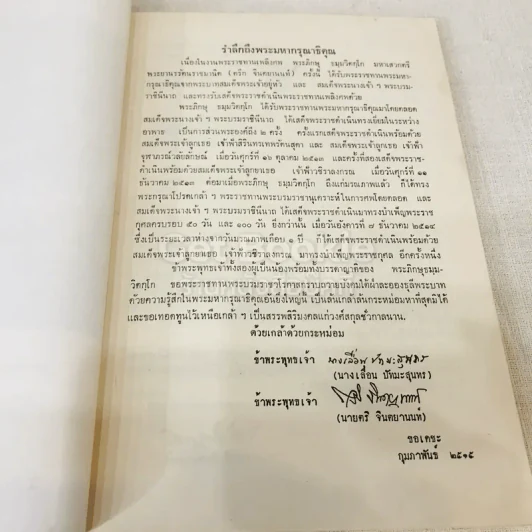 รำลึกถึงพระมหากรุณาธิคุณ
เนื่องในงานพระราชทานเพลิงศพ พระภิกษุ ธมฺมวิตกฺโก มหาเสวกตรี
พระยานรรัตนราชมานิต (ตรึก จินตยานนท์) ครั้งนี้ ได้รับพระราชทานพระมหา-
กรุณาธิคุณจากพระบาทสมเด็จพระเจ้าอยู่หัว และ สมเด็จพระนางเจ้า ฯ พระบรม-
ราชินีนาถ และทรงรับเสด็จพระราชดำเนินพระราชทานเพลิงศพด้วย
พระภิกษุ ธมฺมวิตกฺโก ได้รับพระราชทานพระมหากรุณาธิคุณมาโดยตลอด
สมเด็จพระนางเจ้า ฯ พระบรมราชินีนาถ ได้เสด็จพระราชดำเนินทรงเยี่ยมในระหว่าง
อาพาธ เป็นการส่วนพระองค์ถึง ๒ ครั้ง ครั้งแรกเสด็จพระราชดำเนินพร้อมด้วย
สมเด็จพระเจ้าลูกเธอ เจ้าฟ้าสิรินธรเทพรัตนสุดา และ สมเด็จพระเจ้าลูกเธอ เจ้าฟ้า
จุฬาภรณ์วลัยลักษณ์ เมื่อวันศุกร์ที่ ๑๖ ตุลาคม ๒๕๑๓ และครั้งที่สองเสด็จพระราช-
ดำเนินพร้อมด้วยสมเด็จพระเจ้าลูกยาเธอ เจ้าฟ้าวชิราลงกรณ เมื่อวันศุกร์ที่ ๑๑
ธันวาคม ๒๕๑๓ ต่อมาเมื่อพระภิกษุ ธมฺมวิตกฺโก ถึงแก่มรณภาพแล้ว ก็ได้ทรง
พระกรุณาโปรดเกล้า ฯ พระราชทานพระบรมราชานุเคราะห์ในการศพโดยตลอด และ
สมเด็จพระนางเจ้า ฯ พระบรมราชินีนาถ ได้เสด็จพระราชดำเนินมาทรงบำเพ็ญพระราช-
กุศลครบรอบ ๕๐ วัน และ ๑๐๐ วัน ยิ่งกว่านั้น เมื่อวันอังคารที่ ๗ ธันวาคม ๒๕๑๔
ซึ่งเป็นระยะเวลาห่างจากวันมรณภาพเกือบ ๑ ปี ก็ได้เสด็จพระราชดำเนินพร้อมด้วย
สมเด็จพระเจ้าลูกยาเธอ เจ้าฟ้าวชิราลงกรณ มาทรงบำเพ็ญพระราชกุศล อีกครั้งหนึ่ง
ข้าพระพุทธเจ้าทั้งสองผู้เป็นน้องพร้อมทั้งบรรดาญาติของ พระภิกษุธมฺม-
วิตกฺโก ขอพระราชทานพระบรมราชวโรกาสกราบถวายบังคมใต้ฝ่าละอองธุลีพระบาท
ด้วยความรู้สึกในพระมหากรุณาธิคุณอันยิ่งใหญ่นี้ เป็นล้นเกล้าล้นกระหม่อมหาที่สุดมิได้
และขอเทอดทูนไว้เหนือเกล้า ฯ เป็นสรรพสิริมงคลแก่วงศ์สกุลชั่วกาลนาน
ด้วยเกล้าด้วยกระหม่อม
ข้าพระพุทธเจ้า นางเลื่อน ปัทมะสุนทร
(นางเลื่อน ปัทมะสุนทร)
ข้าพระพุทธเจ้า
(นายตริ จินตยานนท์)
ขอเดชะ
กุมภาพันธ์ ๒๕๑๕